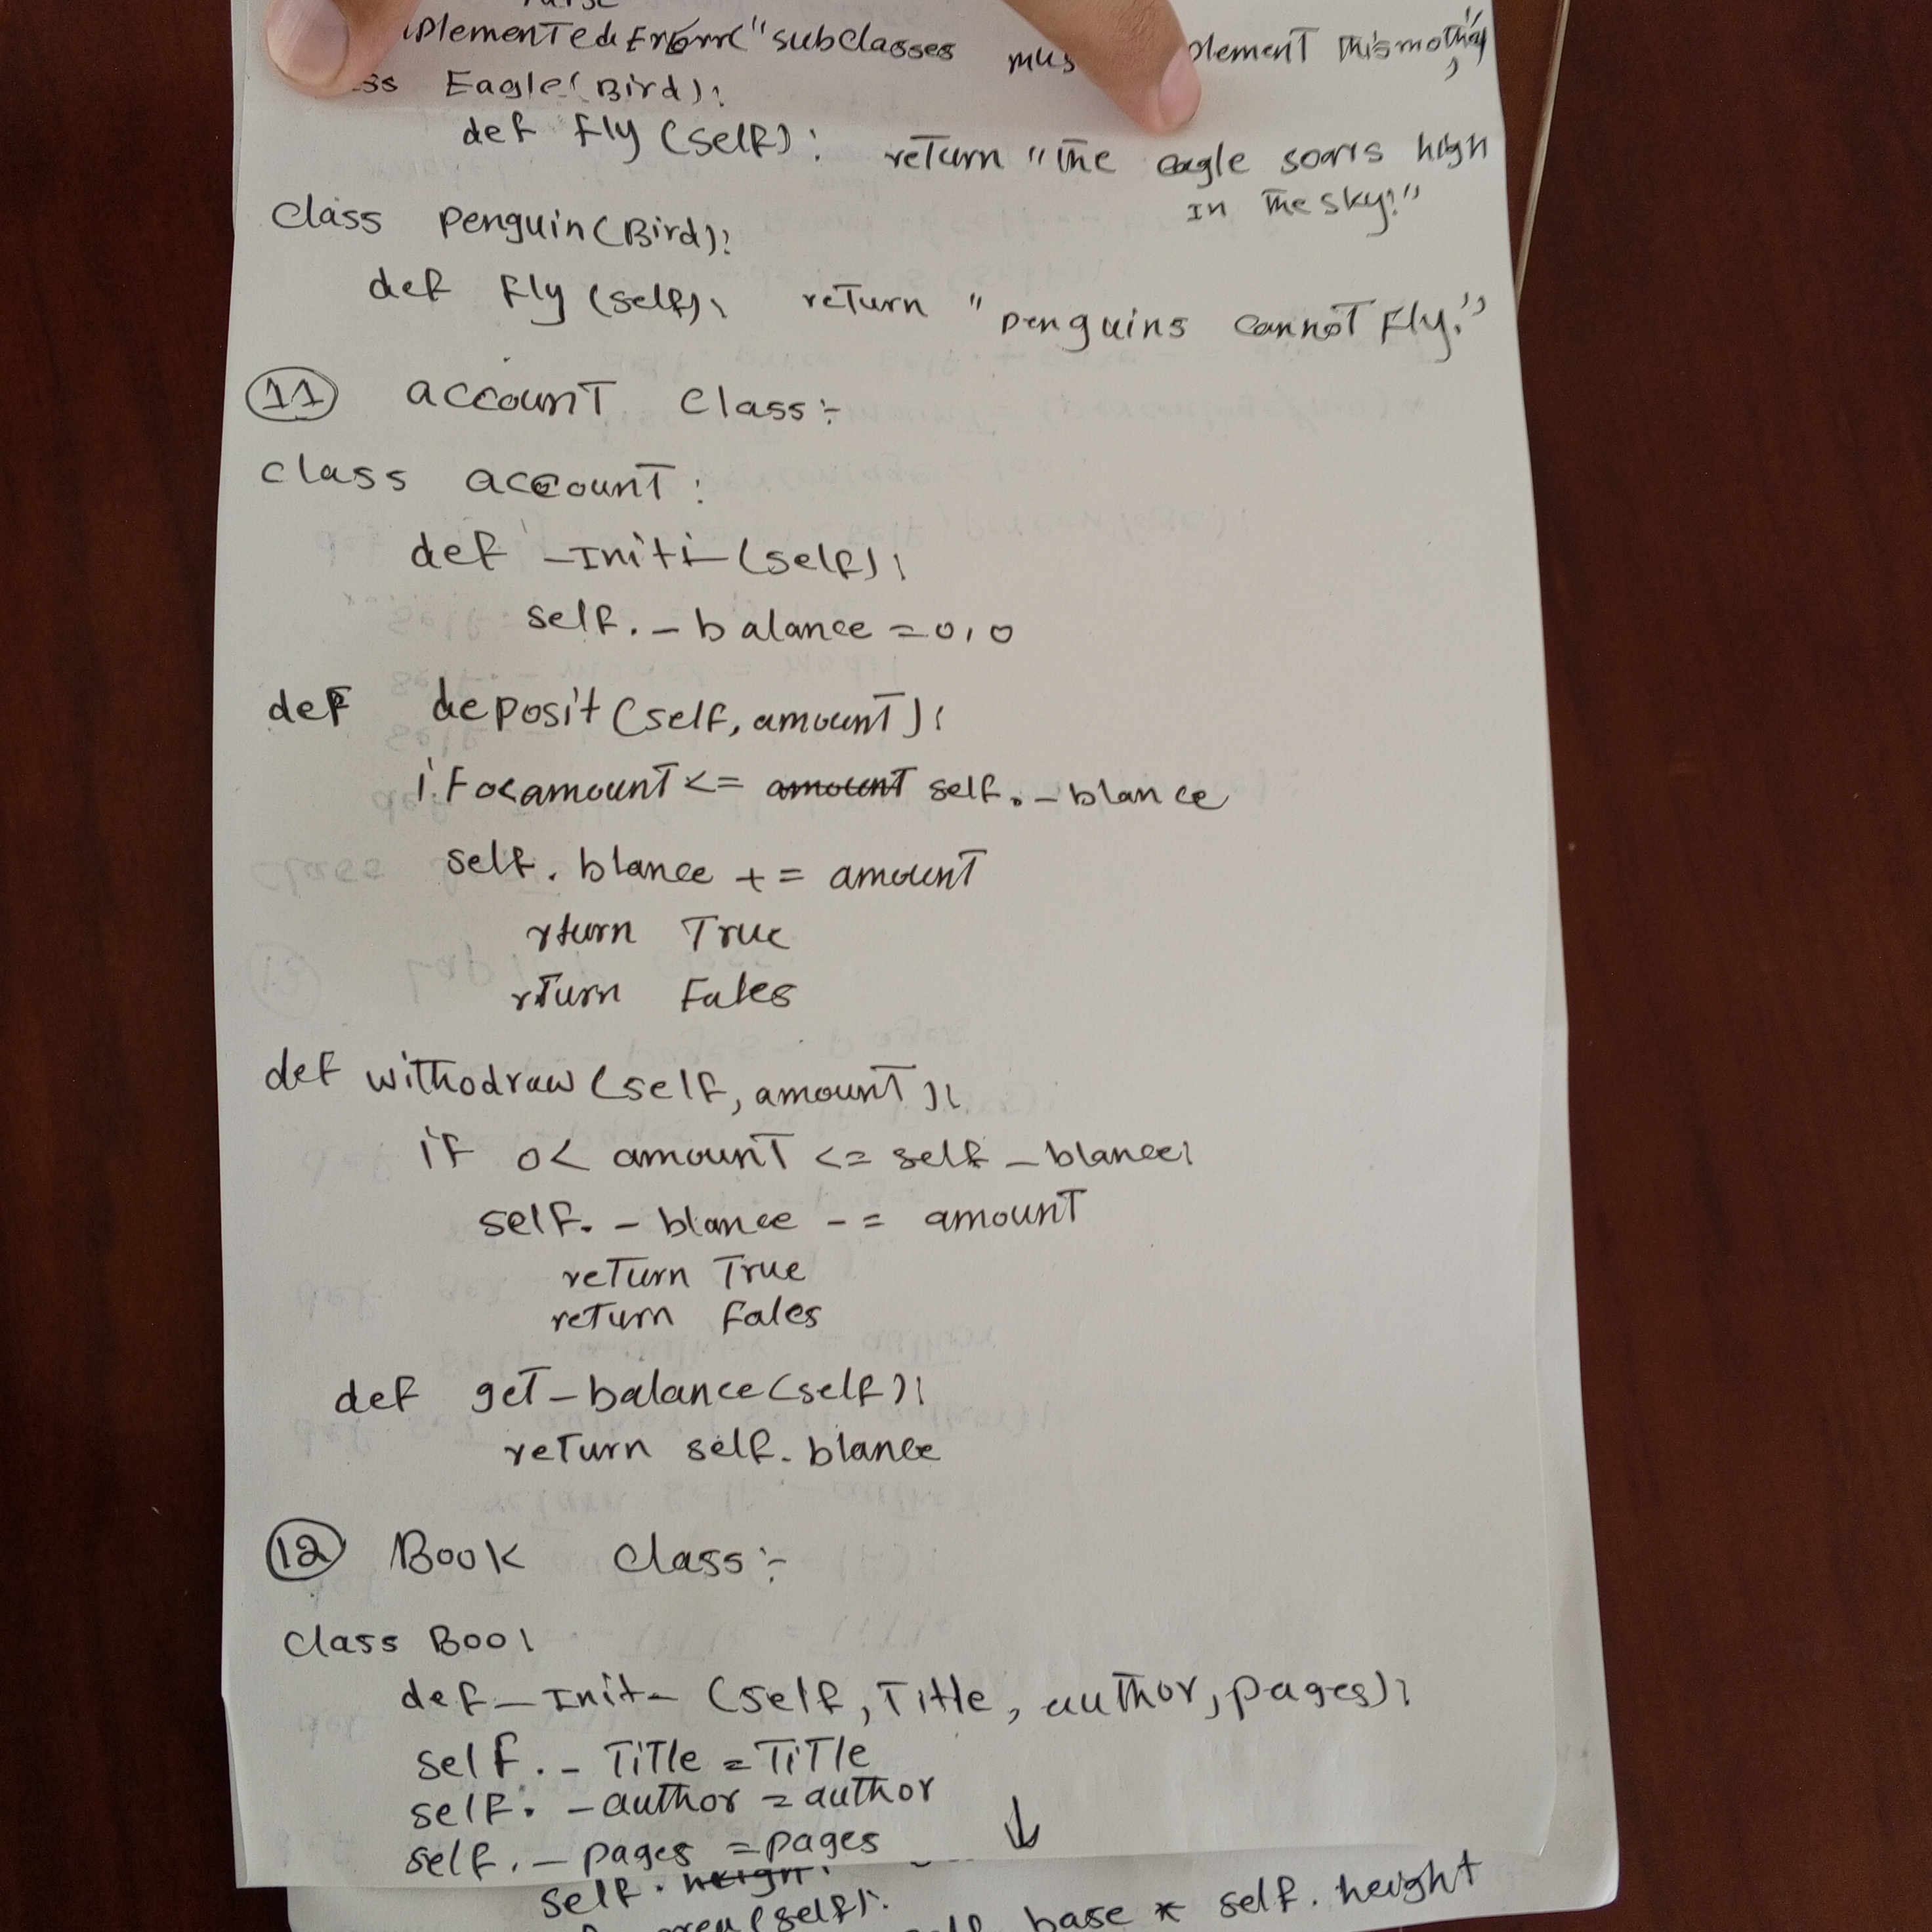 plementedError("subclasses mus plement this
ss Eagle(Bird):
def fly (self): return "The eagle soars high
In The sky!"
class penguin(Bird):
def fly (self): return "penguins cannot fly."
11 account class:-
class account:
def _Initi_(self):
self._balance = 0,0
def deposit (self, amount):
if 0<amount <= self._blance
self. blance += amount
rturn True
rturn Fales
def withodraw (self, amount):
if 0< amount <= self _blance:
self._blance -= amount
return True
return fales
def get_balance(self):
return self. blance
12 Book class:-
class Boo
def _Init_ (self, Title, author, pages):
self._Title = Title
self._author = author
self._pages = pages
self.
(self):
base * self. height